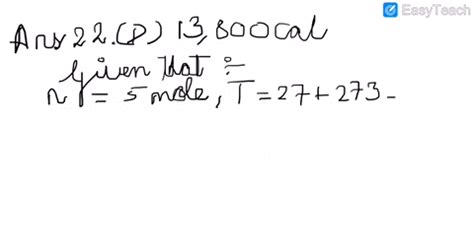 EasyTeach
Ans 22.(8) 13,800 cal
Given that ÷
n = 5 mole, T = 27 + 273 -